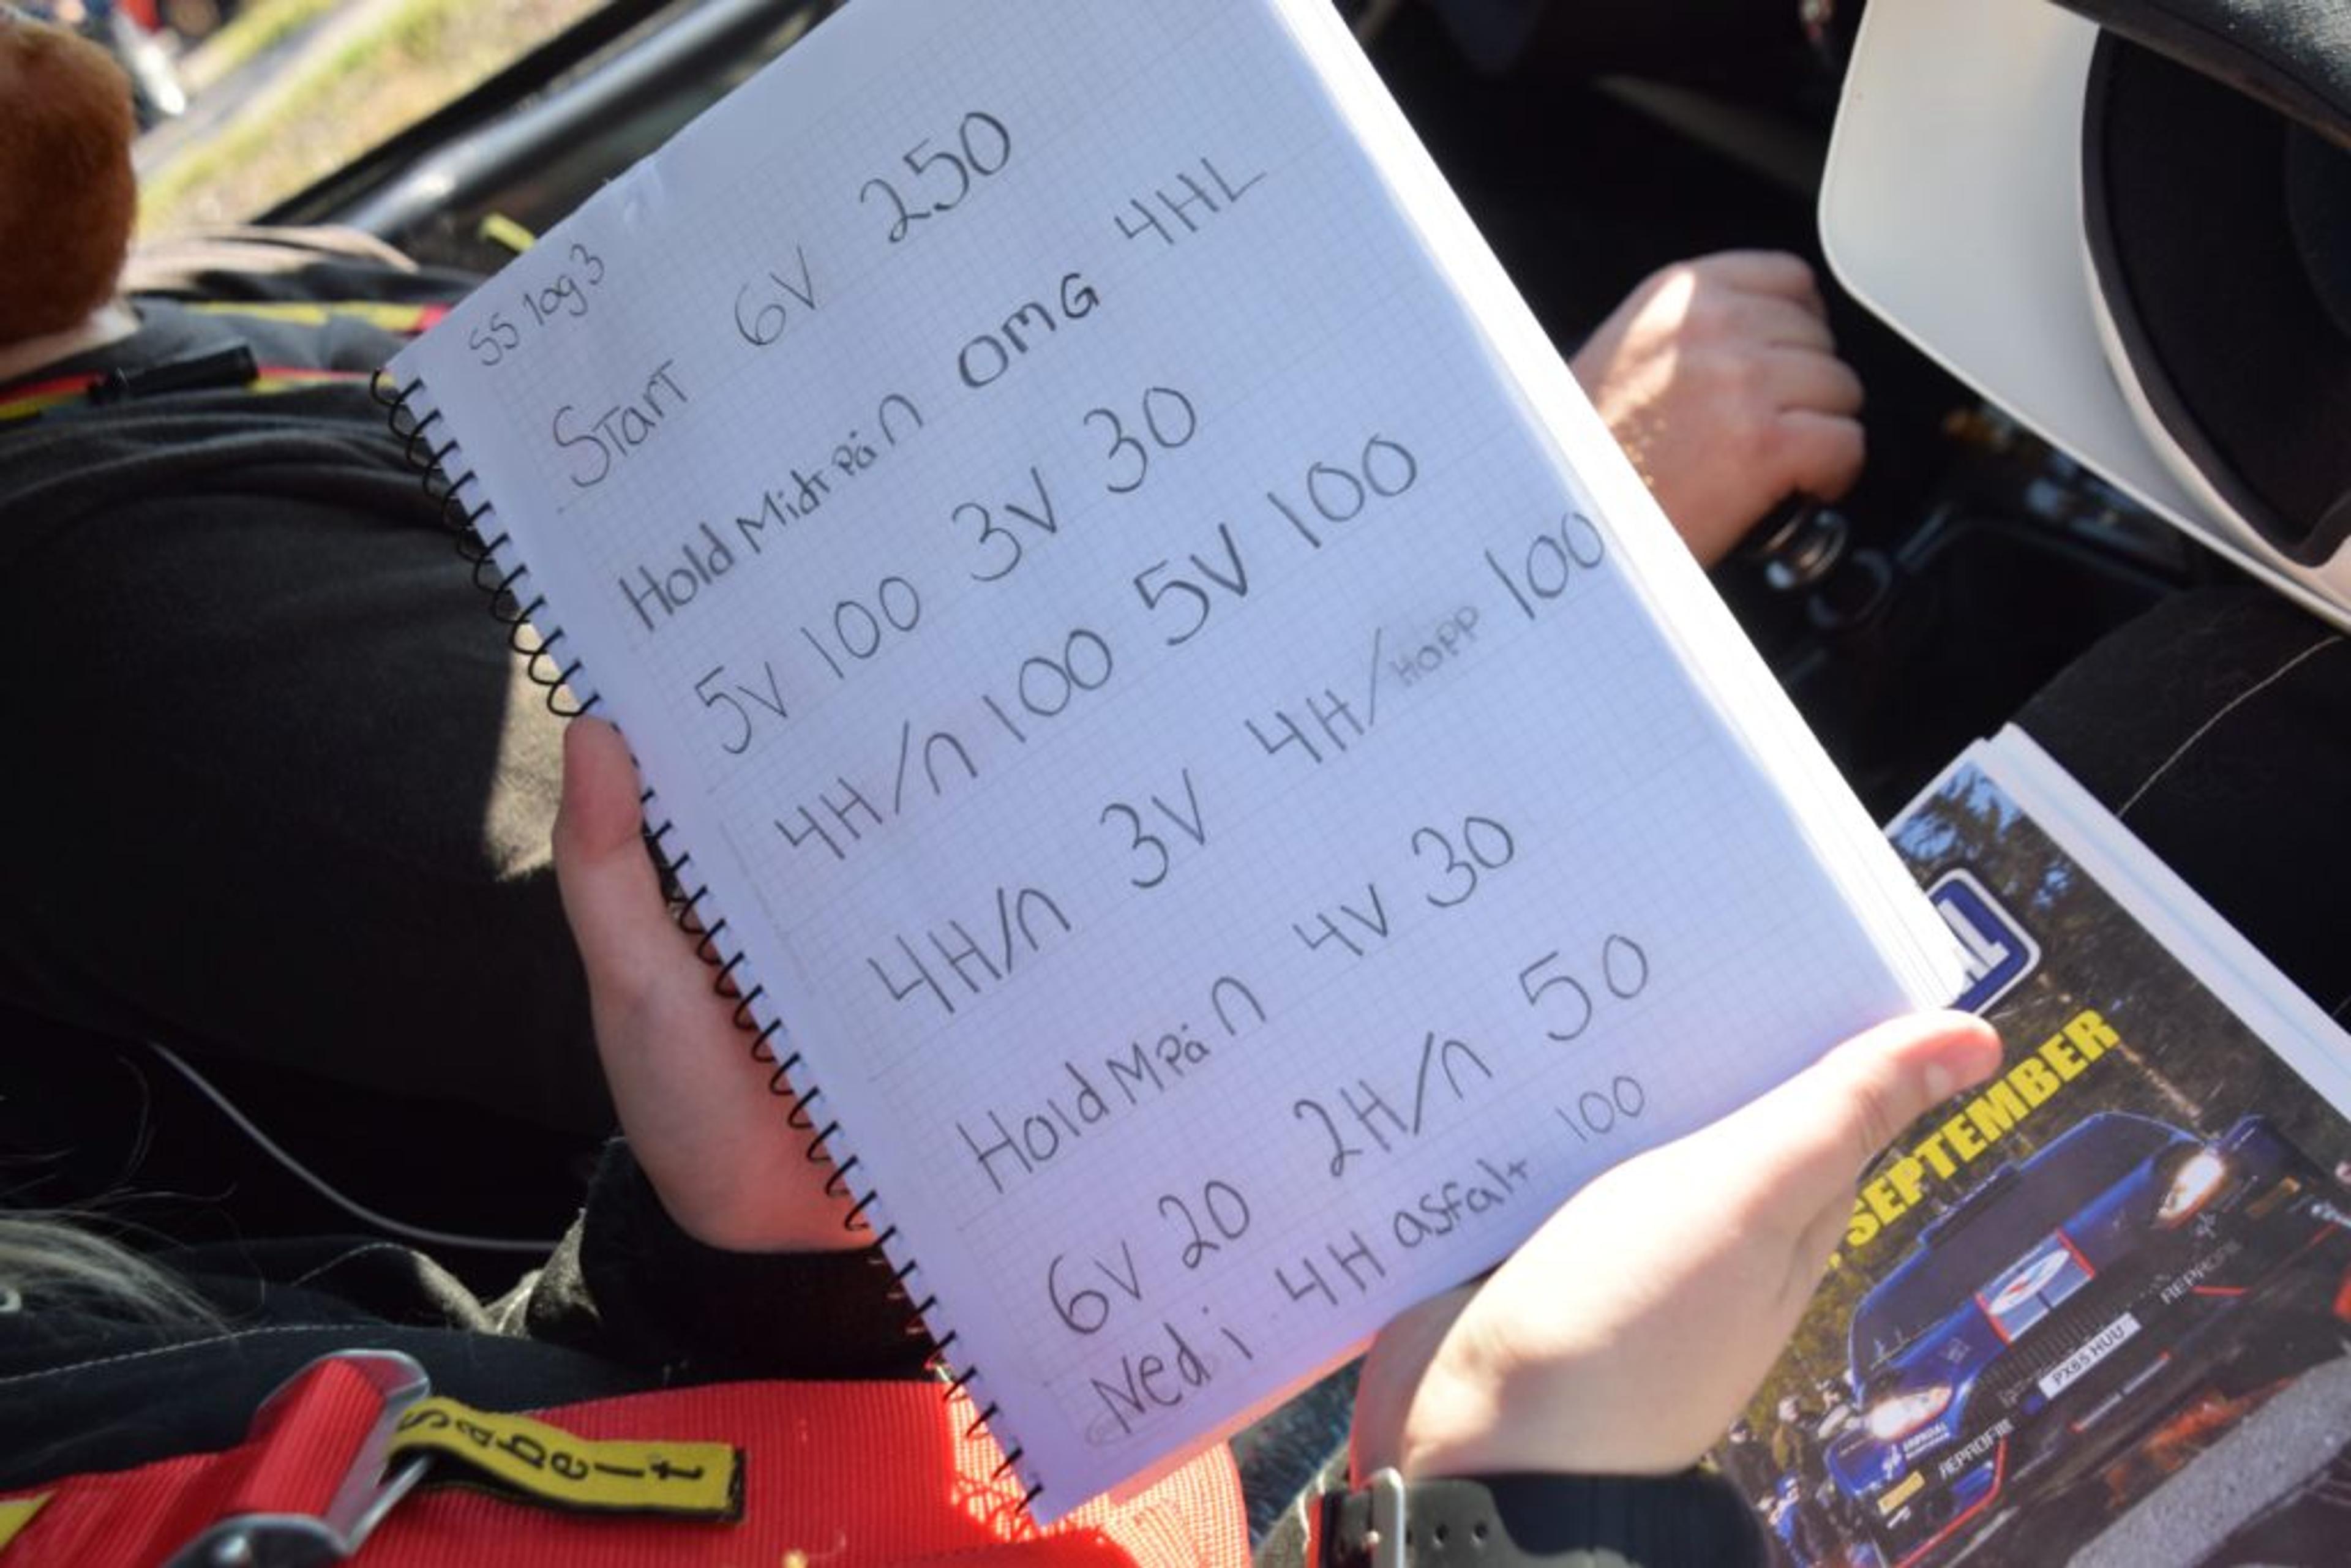 SS 1og3
Start 6V 250
Hold Midt på ∩ OMG 4HL
5V 100 3V 30
4H/∩ 100 5V 100
4H/∩ 3V 4H/Hopp 100
Hold M på ∩ 4V 30
6V 20 2H/∩ 50
Ned i 4H asfalt 100
Sabelt
AL
SEPTEMBER
REPROFIL
PX65 HUU
REPROFIL